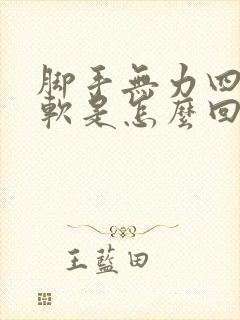 脚手無力四
軟是怎麼回
王藍田